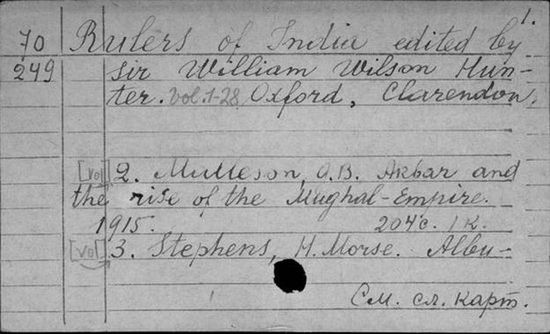 1.
70 Rulers of India edited by
249 sir William Wilson Hun-
ter. Vol. 1-28, Oxford, Clarendon,
[Vol] 2. Mulleson, G.B. Akbar and
the rise of the Mughal-Empire.
1915. 204 c. 1 K.
[Vol] 3. Stephens, H. Morse. Albu-
См. сл. карт.